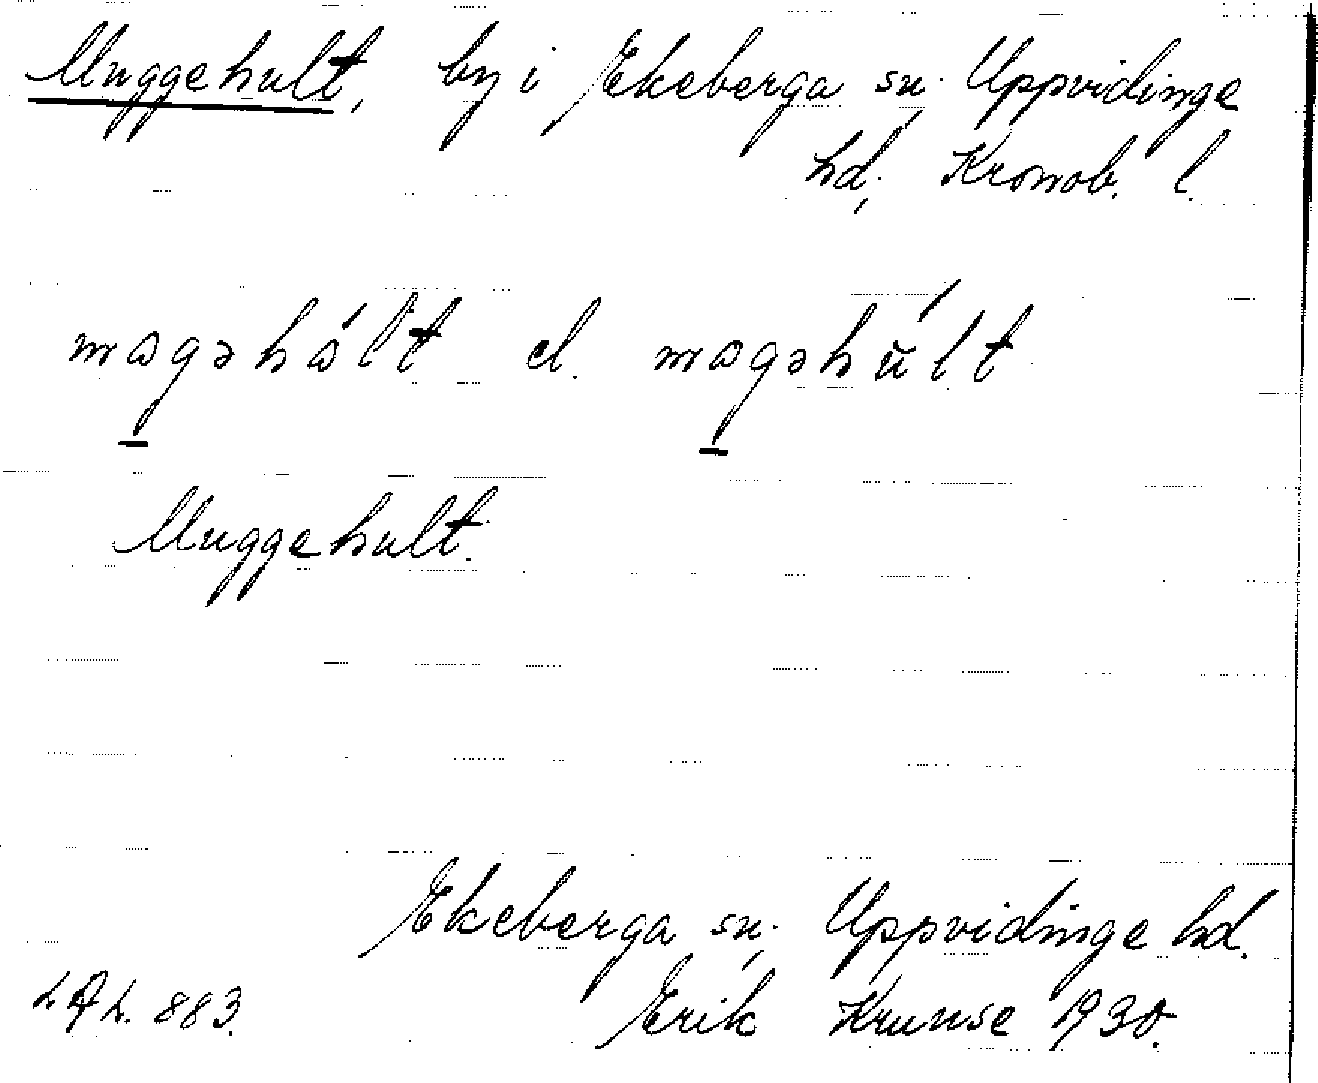 Muggehult, by i Ekeberga sn. Uppvidinge
hd, Kronob. l.
magəhált el. magəhúlt
Muggehult.
Ekeberga sn. Uppvidinge hd.
LAL. 883. Erik Krunse 1930.